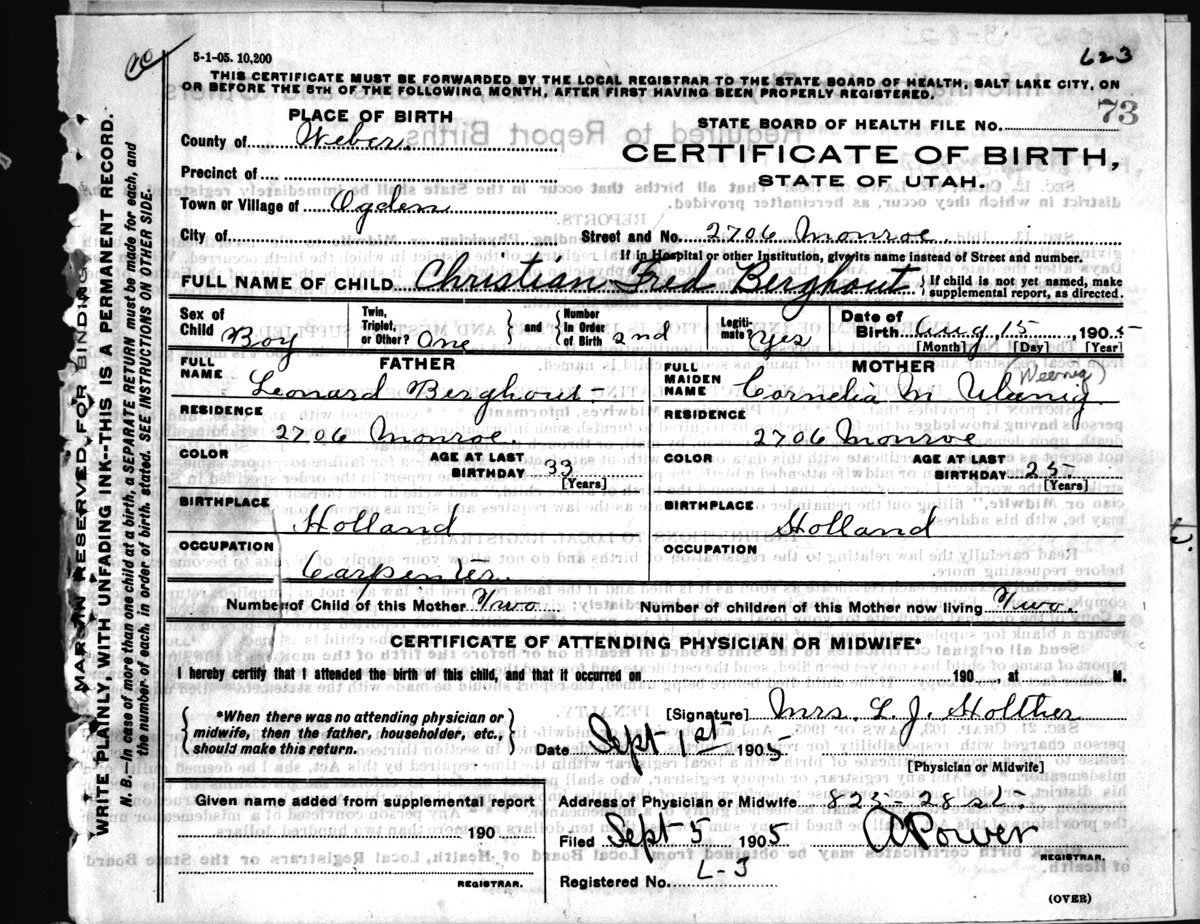 5-1-05. 10,200
623
THIS CERTIFICATE MUST BE FORWARDED BY THE LOCAL REGISTRAR TO THE STATE BOARD OF HEALTH, SALT LAKE CITY, ON
OR BEFORE THE 5TH OF THE FOLLOWING MONTH, AFTER FIRST HAVING BEEN PROPERLY REGISTERED.
PLACE OF BIRTH
STATE BOARD OF HEALTH FILE No. 73
County of Weber.
CERTIFICATE OF BIRTH,
STATE OF UTAH.
Precinct of
Town or Village of Ogden
City of
Street and No. 2706 Monroe.
If in Hospital or other Institution, give its name instead of Street and number.
FULL NAME OF CHILD Christian Fred Berghout
{ If child is not yet named, make
supplemental report, as directed.
Sex of
Child Boy
Twin,
Triplet,
or Other? One
and
Number
in Order
of Birth 2nd
Legiti-
mate? Yes
Date of
Birth Aug 15, 1905
[Month] [Day] [Year]
FATHER
FULL
NAME
Leonard Berghout
RESIDENCE
2706 Monroe.
COLOR
AGE AT LAST
BIRTHDAY 33
[Years]
BIRTHPLACE
Holland
OCCUPATION
Carpenter.
MOTHER
FULL
MAIDEN
NAME
Cornelia M
Weenig)
RESIDENCE
2706 Monroe
COLOR
AGE AT LAST
BIRTHDAY 25
[Years]
BIRTHPLACE
Holland
OCCUPATION
Number of Child of this Mother Two
Number of children of this Mother now living Two.
CERTIFICATE OF ATTENDING PHYSICIAN OR MIDWIFE*
I hereby certify that I attended the birth of this child, and that it occurred on 190 , at M.
{ *When there was no attending physician or
midwife, then the father, householder, etc.,
should make this return. }
[Signature] Mrs. L. J. Holther
Date Sept 1st 1905
[Physician or Midwife]
Given name added from supplemental report
190
REGISTRAR.
Address of Physician or Midwife 823-28 st.
Filed Sept 5 1905 A Power
REGISTRAR.
Registered No. L-3
(OVER)
MARGIN RESERVED FOR BINDING
WRITE PLAINLY, WITH UNFADING INK--THIS IS A PERMANENT RECORD.
N. B.—In case of more than one child at a birth, a SEPARATE RETURN must be made for each, and
the number of each, in order of birth, stated. SEE INSTRUCTIONS ON OTHER SIDE.